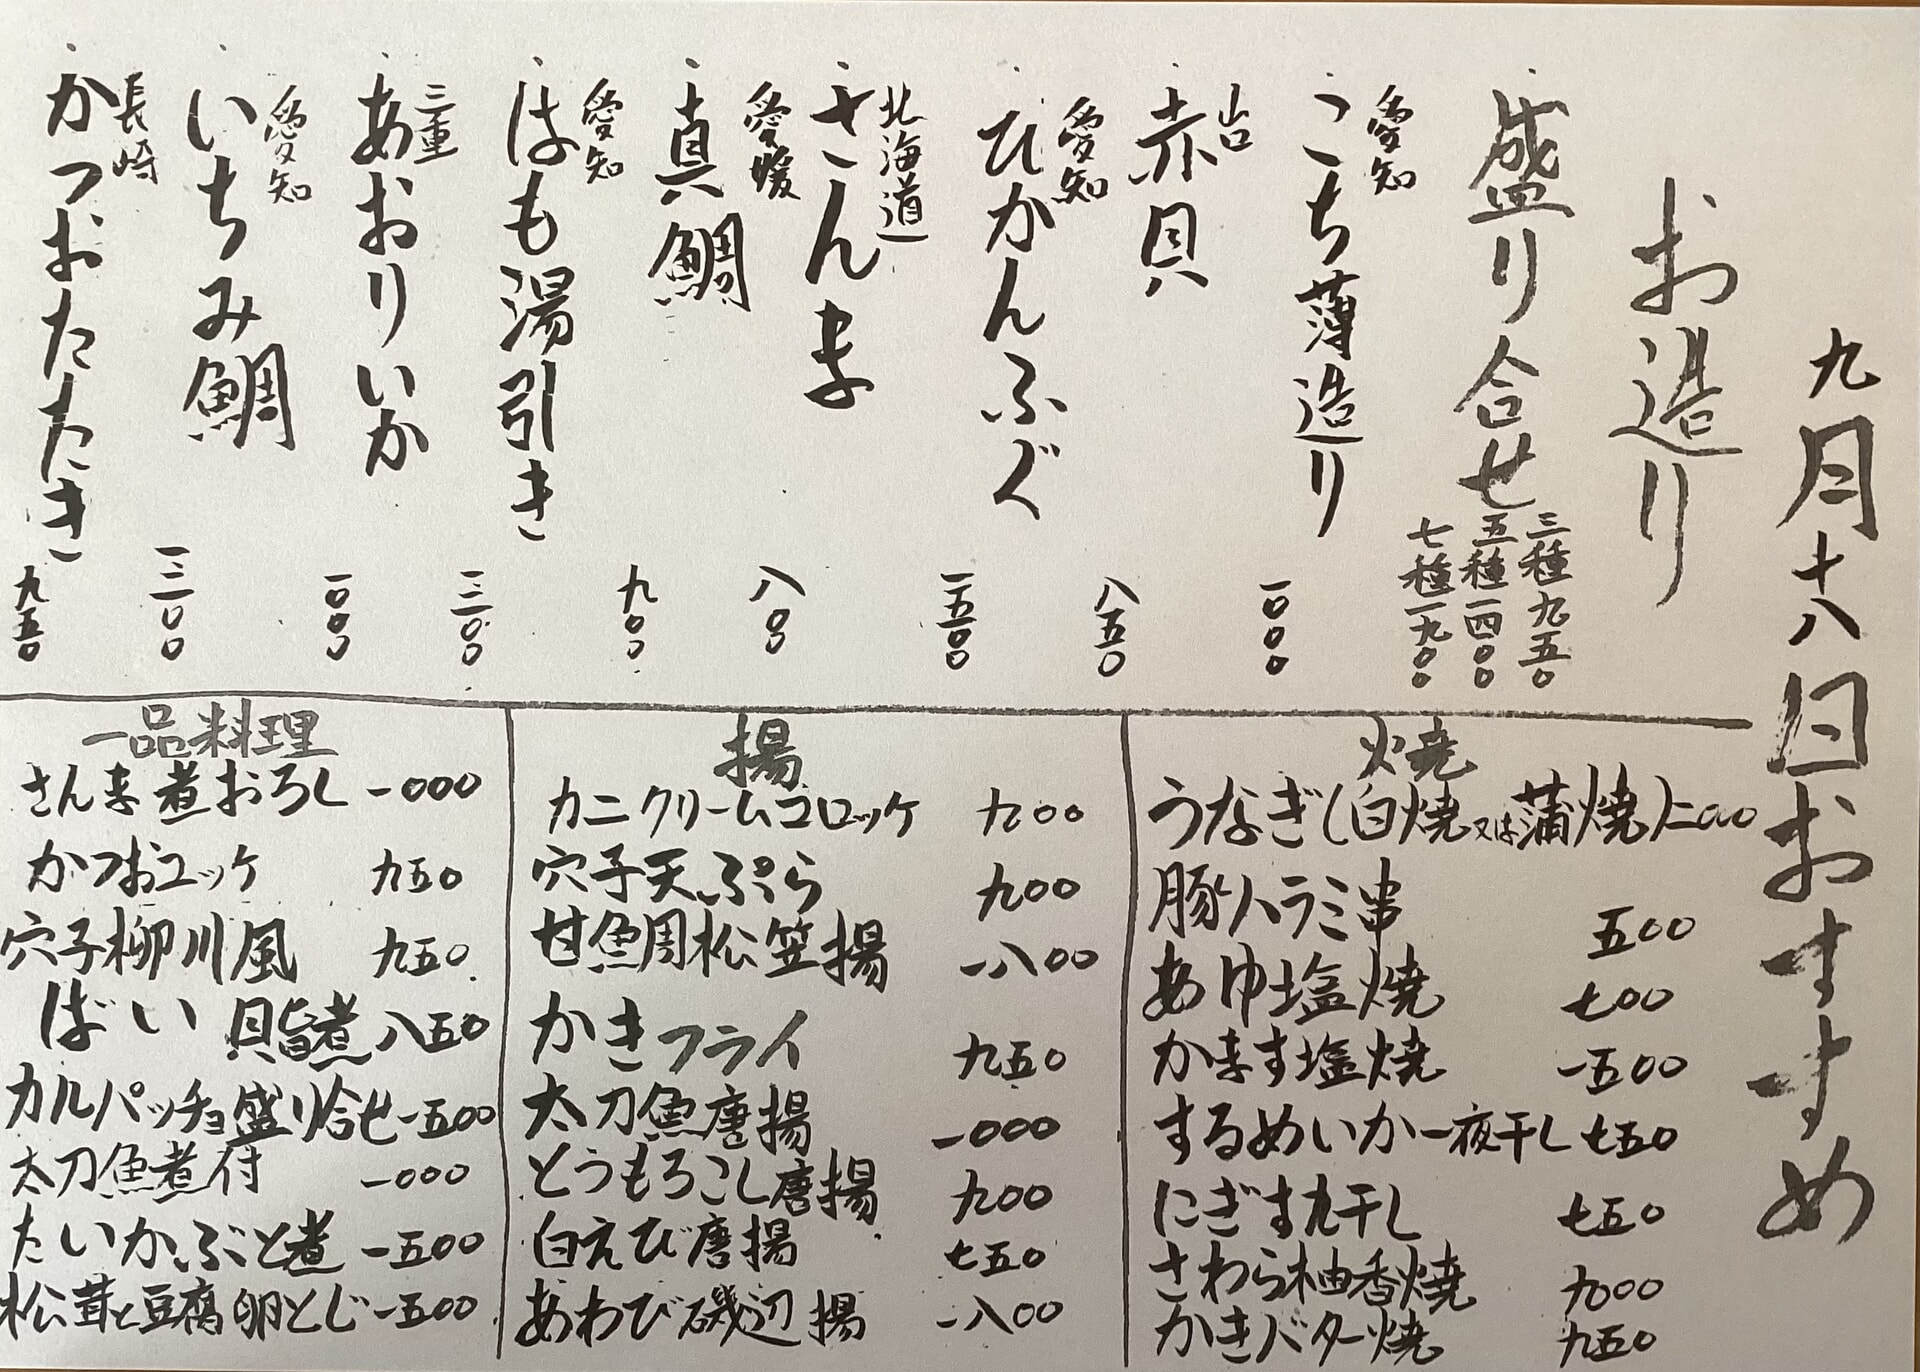 九月十八日おすすめ
お造り
盛り合せ
三種 九五〇
五種 一四〇〇
七種 一九〇〇
愛知
こち薄造り 一〇〇〇
山口
赤貝 八五〇
愛知
ひかんふぐ 一五〇〇
北海道
さんま 八〇〇
愛媛
真鯛 九〇〇
愛知
はも湯引き 一三〇〇
三重
あおりいか 一〇〇〇
愛知
いちみ鯛 一三〇〇
長崎
かつおたたき 九五〇
焼
うなぎ(白焼又は蒲焼)二〇〇〇
豚ハラミ串 五〇〇
あゆ塩焼 七〇〇
かます塩焼 一五〇〇
するめいか一夜干し 七五〇
にぎす丸干し 七五〇
さわら柚香焼 九〇〇
かきバター焼 九五〇
揚
カニクリームコロッケ 九〇〇
穴子天ぷら 九〇〇
甘鯛松笠揚 一八〇〇
かきフライ 九五〇
太刀魚唐揚 一〇〇〇
とうもろこし唐揚 九〇〇
白えび唐揚 七五〇
あわび磯辺揚 一八〇〇
一品料理
さんま煮おろし 一〇〇〇
かつおユッケ 九五〇
穴子柳川風 九五〇
ばい貝旨煮 八五〇
カルパッチョ盛り合せ 一五〇〇
太刀魚煮付 一〇〇〇
たいかぶと煮 一五〇〇
松茸と豆腐卵とじ 一五〇〇